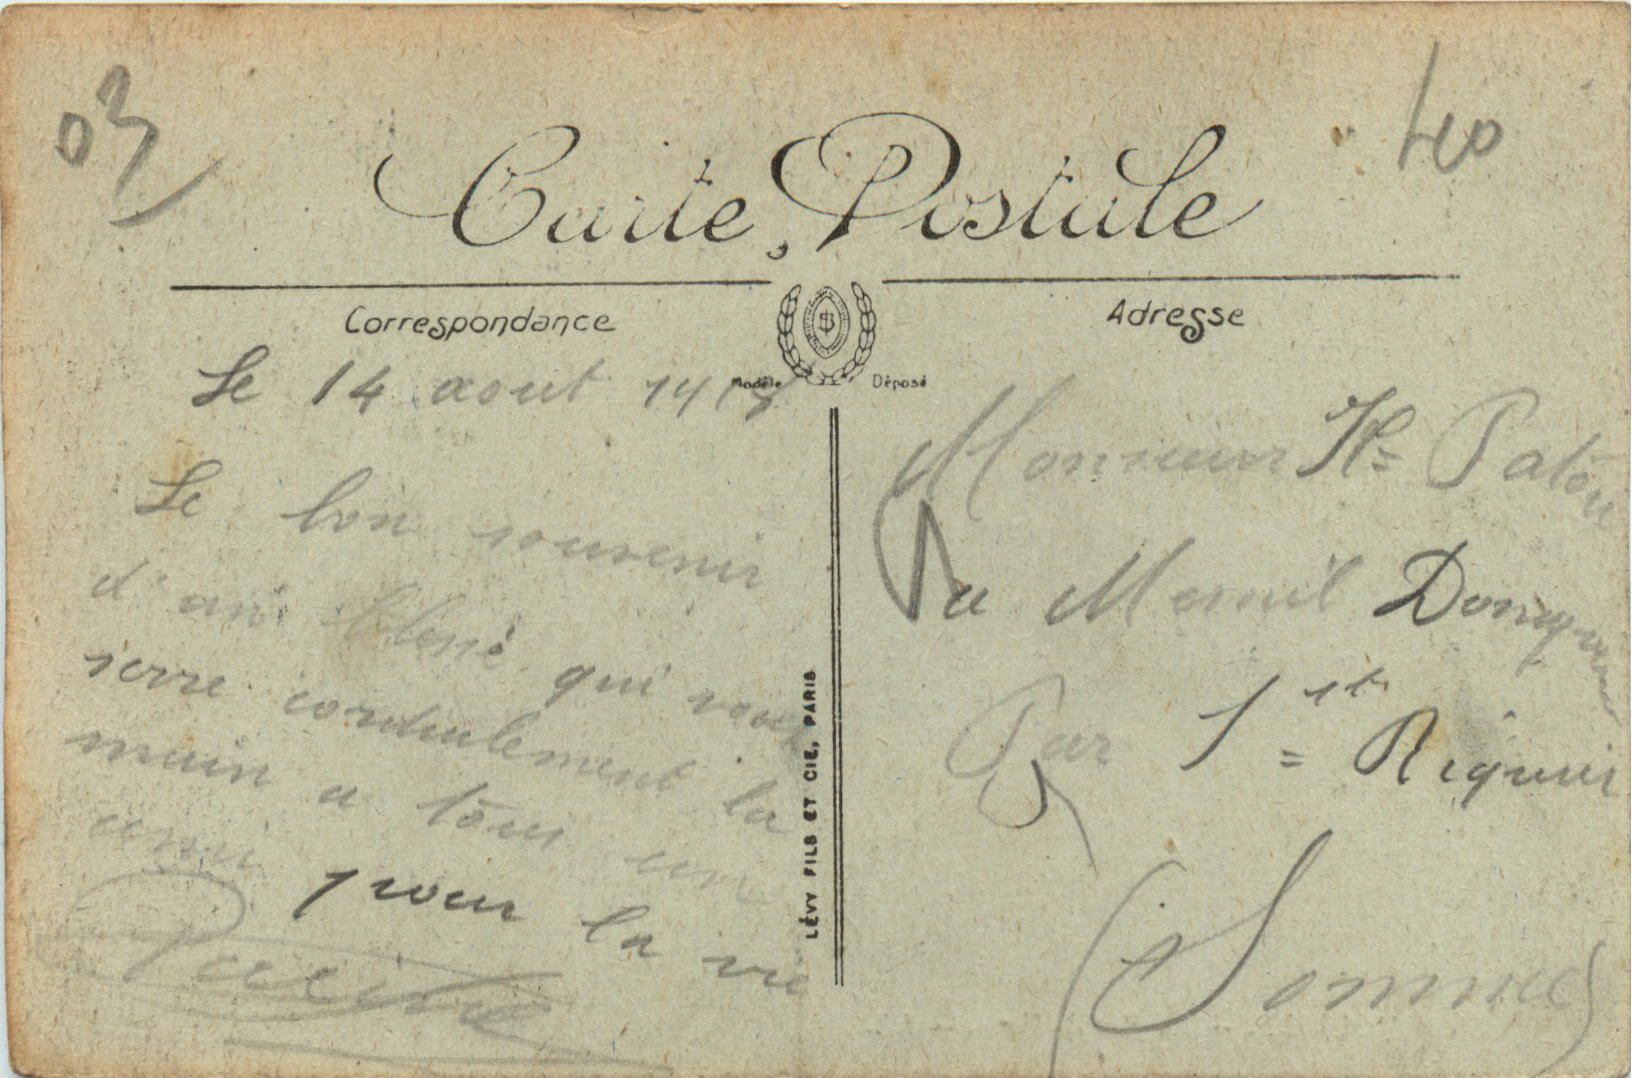 03
40
Carte Postale
Correspondance
Adresse
Modèle Déposé
Le 14 aout 1915
Le bon souvenir
d'un blessé qui vous
serre cordialement la
main a tous un
ami pour la vie
LÉVY FILS ET CIE, PARIS
Monsieur Patou
a Mesnil
Par St = Riquier
(Somme)